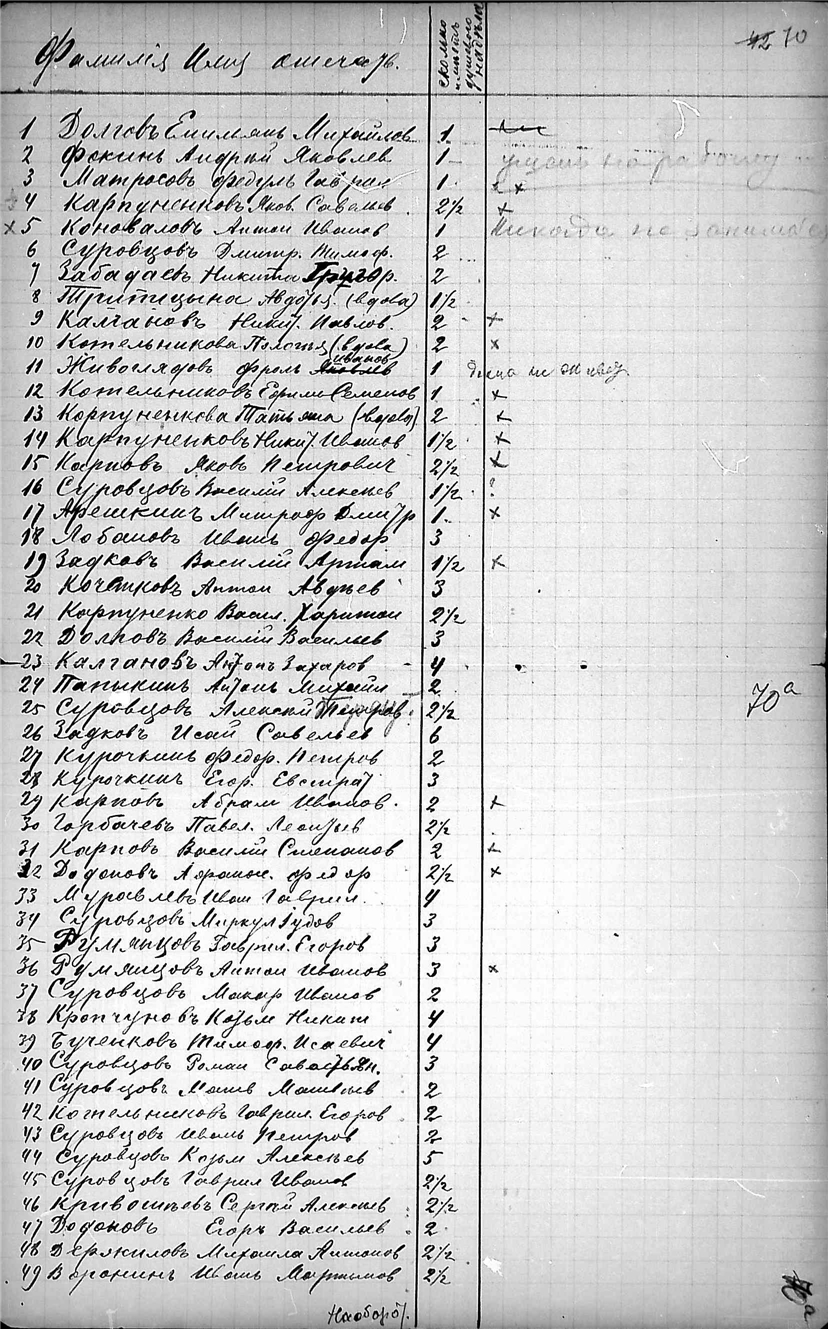 70
Фамилія Имя отечатв.
сколько имѣетъ душевого надѣла
1 Долговъ Емильянъ Михайлов 1
2 Фокинъ Андрѣй Яковлев 1
3 Матросовъ Федулъ Гаврил 1 x
4 Карпуненковъ Яков Савельев 2½ x
x 5 Коноваловъ Антон Иванов 1 Никогда не занимался
6 Суровцовъ Дмитр. Тимоф. 2
7 Забадаевъ Никита Григор. 2
8 Тритицына Авдотья (вдова) 1½
9 Калгановъ Никит. Павлов. 2 x
10 Котельникова Пологѣя (вдова) 2 x
11 Живоглядовъ Фролъ Иванов 1 дома не живет
12 Котельниковъ Ефрим Семенов 1 x
13 Корпуненкова Татьяна (вдова) 2 x
14 Карпуненковъ Никит. Иванов 1½ x
15 Карповъ Яковъ Петрович 2½ x
16 Суровцовъ Василій Алексѣев 1½ ?
17 Арешкинъ Митроф Дмитр 1 x
18 Лобановъ Иванъ Федор 3
19 Задковъ Василій Артам 1½ x
20 Кочетковъ Антон Авдѣев 3
21 Карпуненко Васил. Харитон 2½
22 Долговъ Василій Васильев 3
23 Калгановъ Антонъ Захаров 4
24 Папыкинъ Антонъ Михайл 2
70а
25 Суровцовъ Алексѣй 2½
26 Задковъ Исай Савельев 6
27 Курочкинъ Федор. Петров 2
28 Курочкинъ Егор. Евстрат 3
29 Карповъ Абрам Иванов. 2 x
30 Горбачевъ Павел. Леонтьев 2½
31 Карповъ Василій Степанов 2 x
32 Додоновъ Афанас. Федор 2½ x
33 Муравлевъ Иван Гаврил. 4
34 Суровцовъ Меркул Іудов 3
35 Румянцовъ Гаврил. Егоров 3
36 Румянцовъ Антон Иванов 3 x
37 Суровцовъ Макар Иванов 2
38 Кропчуновъ Козьм Никит 4
39 Бученковъ Тимоф. Исаевич 4
40 Суровцовъ Роман Савастьян. 3
41 Суровцовъ Матв Матвѣев 2
42 Котельниковъ Гаврил. Егоров 2
43 Суровцовъ Иванъ Петров 2
44 Суровцовъ Козьм Алексѣев 5
45 Суровцовъ Гаврил Иванов 2½
46 Кривошѣевъ Сергѣй Алексѣев 2½
47 Додоновъ Егоръ Васильев 2
48 Держиловъ Михаила Антонов 2½
49 Воронинъ Иванъ Мартынов 2½
Наоборот.